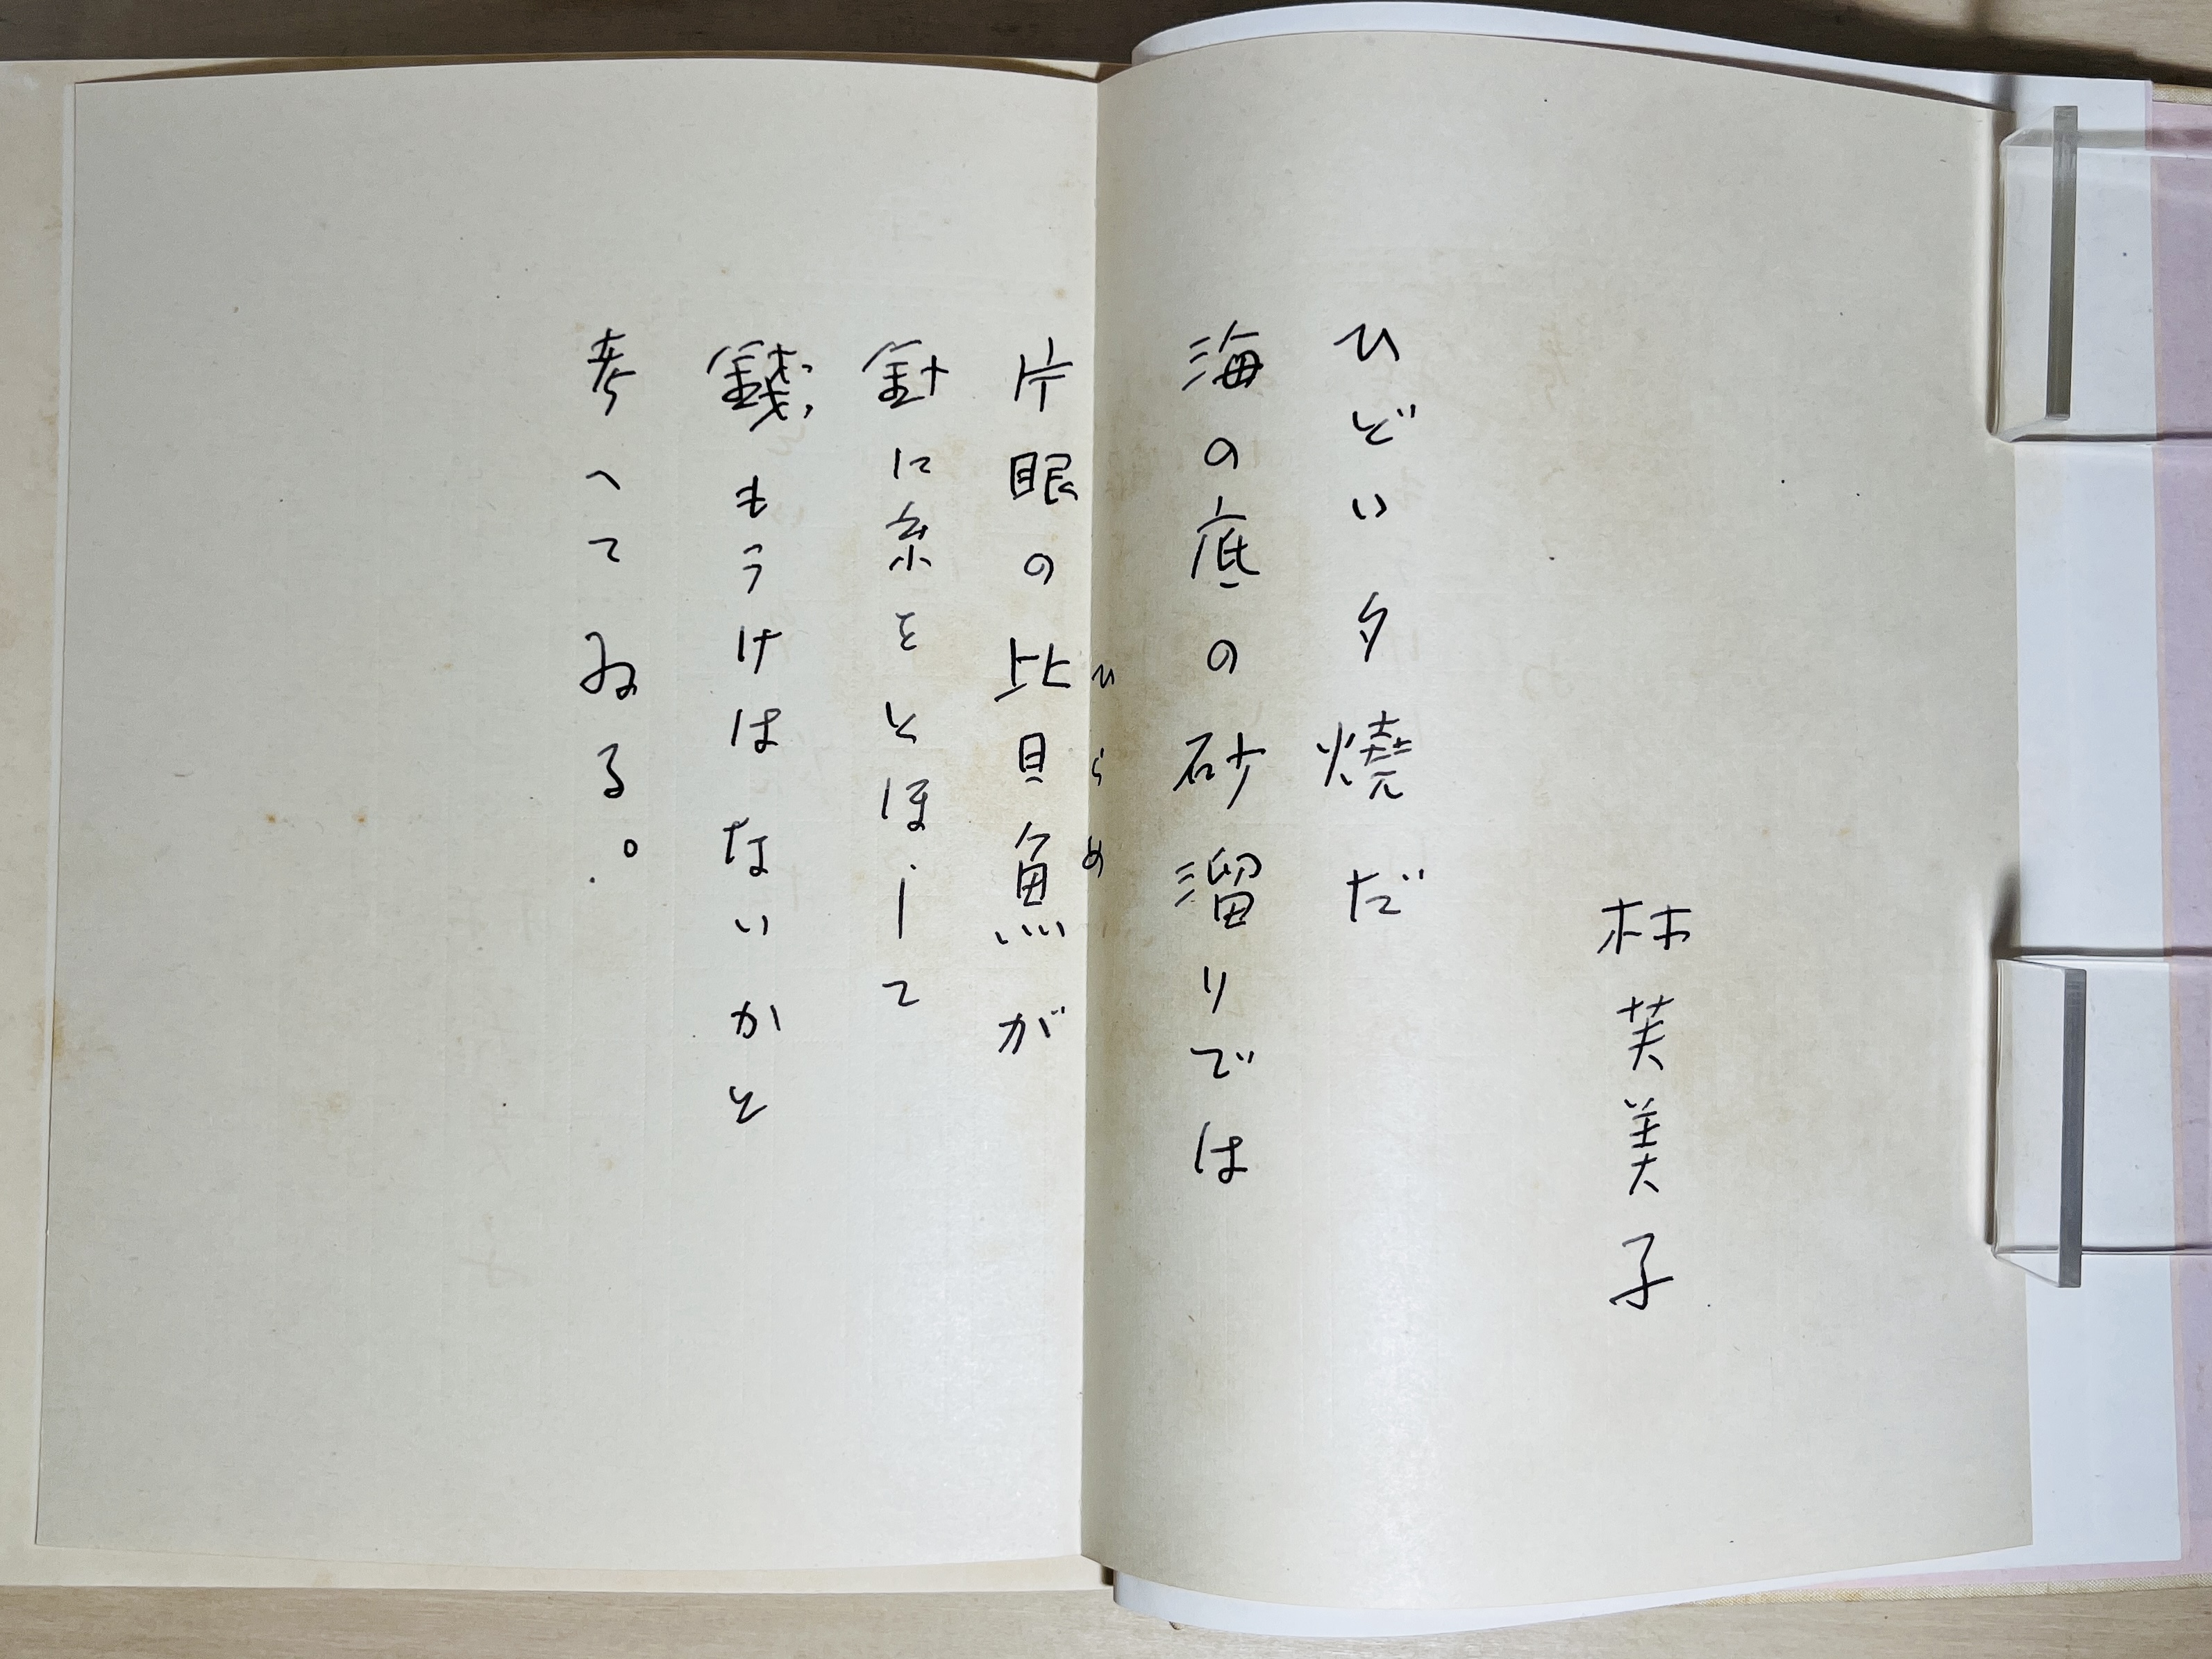 林芙美子
ひどい夕燒だ
海の底の砂溜りでは
片眼の比目魚が
ひらめ
針に糸をとほして
錢もうけはないかと
考へてゐる。